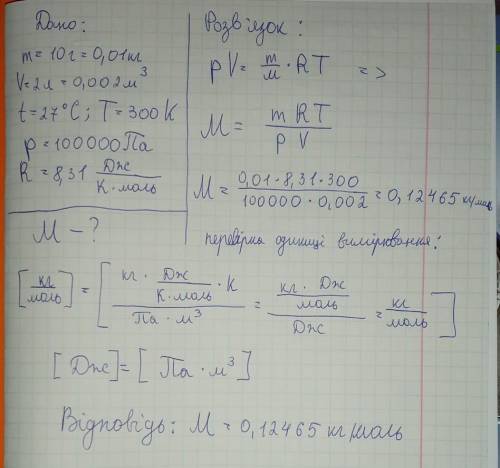 Дано:
m = 10 г = 0,01 кг
V = 2 л = 0,002 м³
t = 27°C ; T = 300 K
p = 100000 Па
R = 8,31 Дж / К·моль
M - ?
Розв'язок:
pV = m/M · RT =>
M = mRT / pV
M = 0,01 · 8,31 · 300 / 100000 · 0,002 = 0,12465 кг/моль
перевірка одиниці вимірювання:
[кг/моль] = [кг · Дж/К·моль · К / Па · м³ = кг · Дж/моль / Дж = кг/моль]
[Дж] = [Па · м³]
Відповідь: M = 0,12465 кг/моль